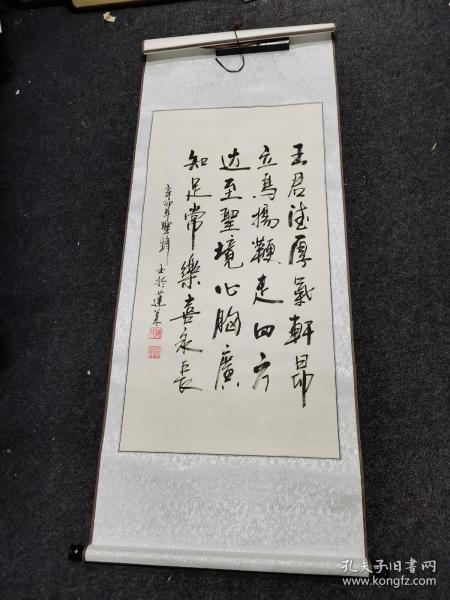 王君德厚氣軒昂
立馬揚鞭走四方
达至聖境心胸廣
知足常樂喜永長
辛卯年聖錚书於蓬莱
孔夫子旧书网
www.kongfz.com